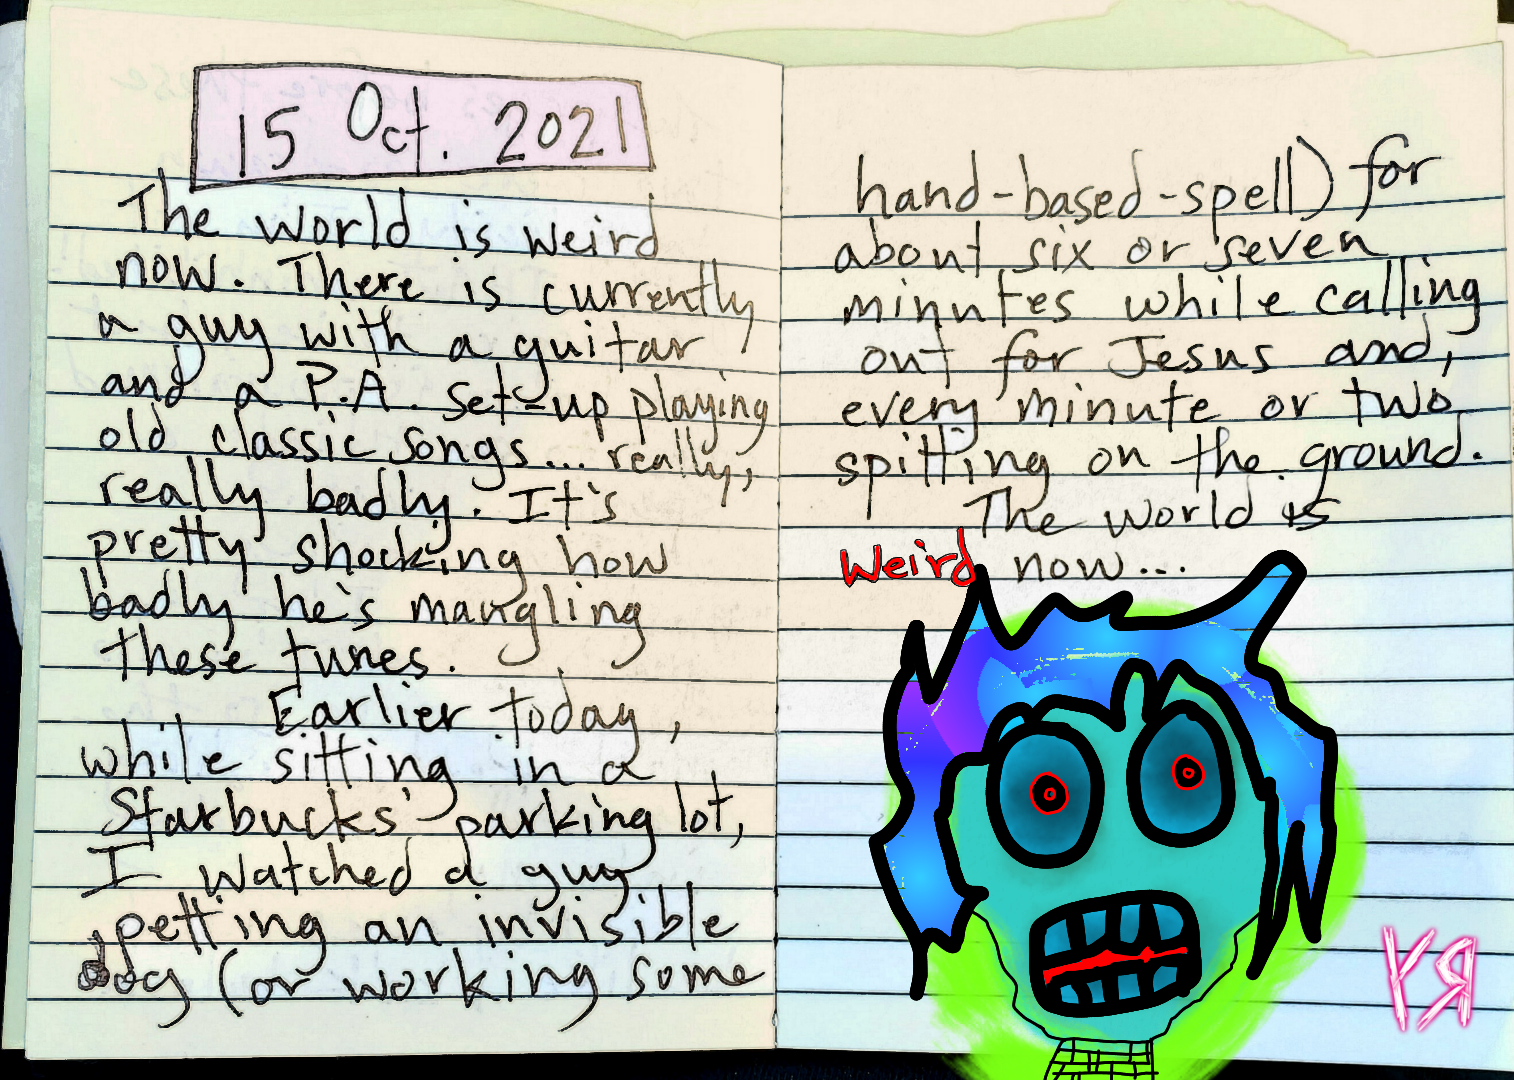 15 Oct. 2021
The world is weird
now. There is currently
a guy with a guitar
and a P.A. set-up playing
old classic songs... really,
really badly. It's
pretty shocking how
badly he's mangling
these tunes.
Earlier today,
while sitting in a
Starbucks' parking lot,
I watched a guy
petting an invisible
dog (or working some
hand-based-spell) for
about six or seven
minutes while calling
out for Jesus and,
every minute or two
spitting on the ground.
The world is
weird now...